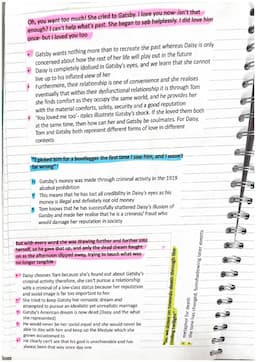 Oh, you want too much! She cried to Gatsby. I love you now- isn't that
enough? I can't help what's past. She began to sob helplessly. I did love him
once- but I loved you too
Gatsby wants nothing more than to recreate the past whereas Daisy is only
concerned about how the rest of her life will play out in the future
Daisy is completely idolised in Gatsby's eyes, and we learn that she cannot
live up to his inflated view of her
Furthermore, their relationship is one of convenience and she realises
eventually that within their dysfunctional relationship it is through Tom
she finds comfort as they occupy the same world, and he provides her
with the material comforts, safety, security and a good reputation
'You loved me too' - italics illustrate Gatsby's shock. If she loved them both
at the same time, then how can her and Gatsby be soulmates. For Daisy,
Tom and Gatsby both represent different forms of love in different
contexts
"I picked him for a bootlegger the first time I saw him, and I wasn't
far wrong"
Gatsby's money was through criminal activity in the 1919
alcohol prohibition
This means that he has lost all credibility in Daisy's eyes as his
money is illegal and definitely not old money
Tom knows that he has successfully shattered Daisy's illusion of
Gatsby and made her realise that he is a criminal/ fraud who
would damage her reputation in society
But with every word she was drawing further and further into
herself, so he gave that up, and only the dead dream fought
on as the afternoon slipped away, trying to touch what was
no longer tangible
Daisy chooses Tom because she's found out about Gatsby's
criminal activity therefore, she can't pursue a relationship
with a criminal of a low-class status because her reputation
and social image is far too important to her
She tried to keep Gatsby her romantic dream and
attempted to pursue an idealistic yet unrealistic marriage
Gatsby's American dream is now dead (Daisy and the what
she represented)
He would never be her social equal and she would never be
able to live with him and keep up the lifestyle which she
grown accustomed to
He clearly can't see that his goal is unachievable and has
always been that way since day one